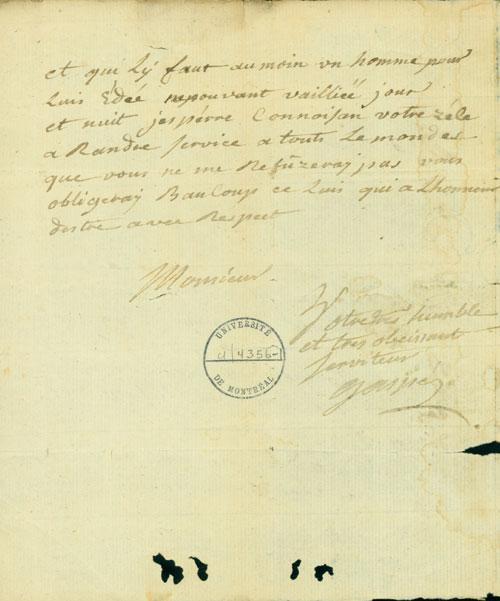 et qui Lÿ faut aumoin un homme pour
Luis Edeé nepouvant vailliéé jour
et nuit jesperre Connoisan votre zéle
a Randre Service a touts Le mondes
que vous ne me Refuzeray pas vous
obligeray Baucoup ce Luis qui a Lhonneur
destre avec Respect
Monsieur
Votre tres humble
et tres obeissant
Serviteur
gaspé
UNIVERSITÉ
4356
DE MONTRÉAL